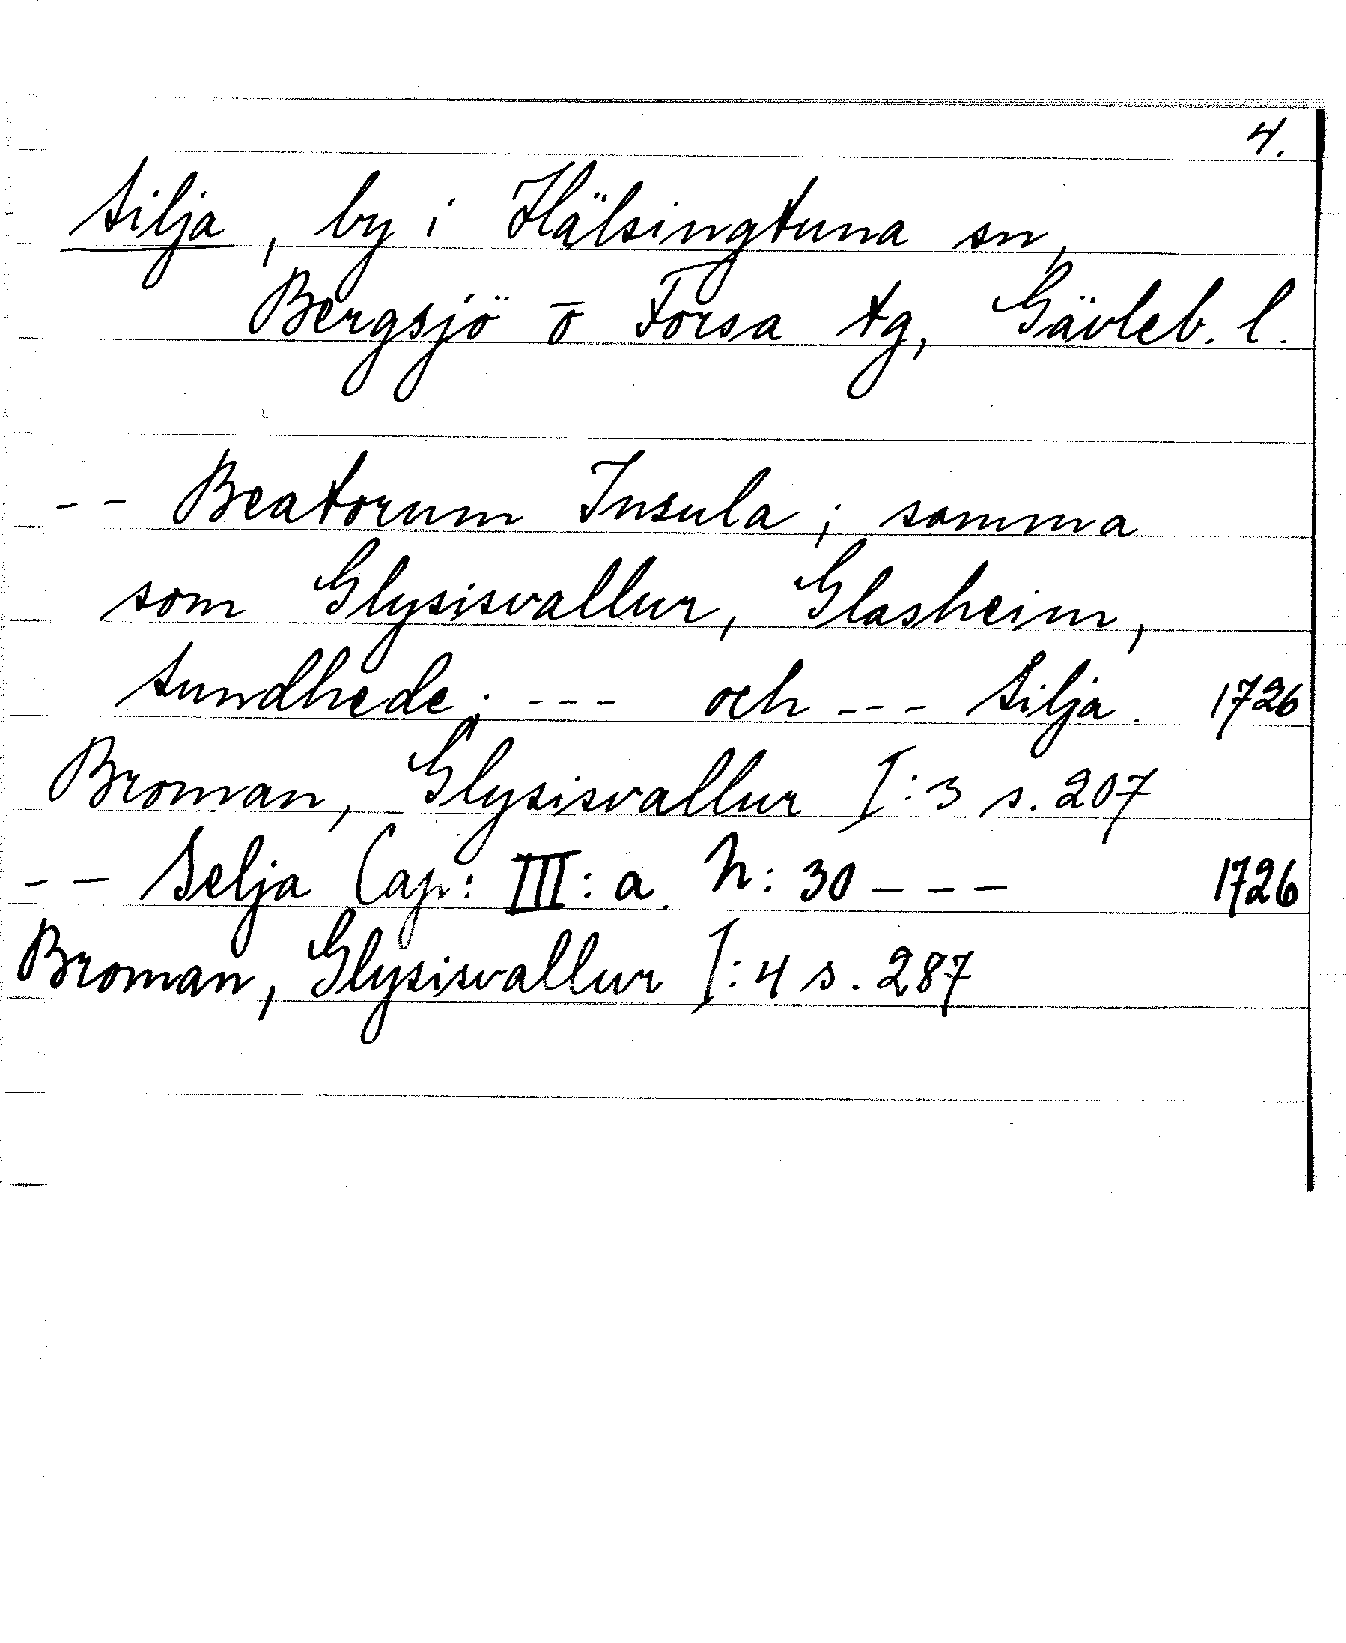 4.
Silja, by i Hälsingtuna sn,
Bergsjö o Forsa tg, Gävleb. l.
-- Beatorum Insula; somma
som Glysisvallur, Glasheim,
Sundhede; --- och --- Silja. 1726
Broman, Glysisvallur I:3 s. 207
-- Selja Cap: III: a. N: 30 --- 1726
Broman, Glysisvallur I:4 s. 287